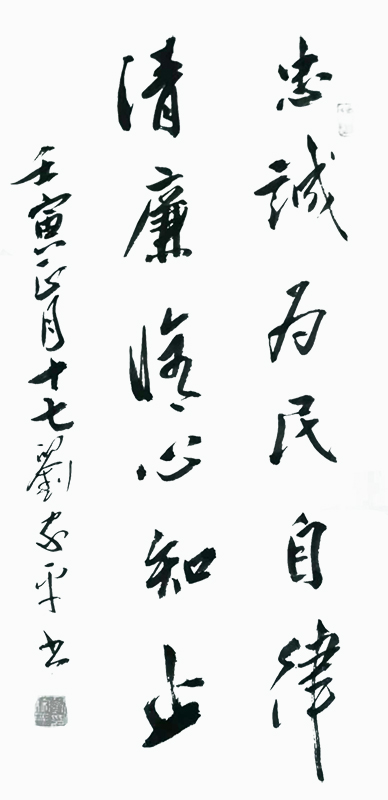 忠誠为民自律
清廉修心知止
壬寅正月十七劉家平书